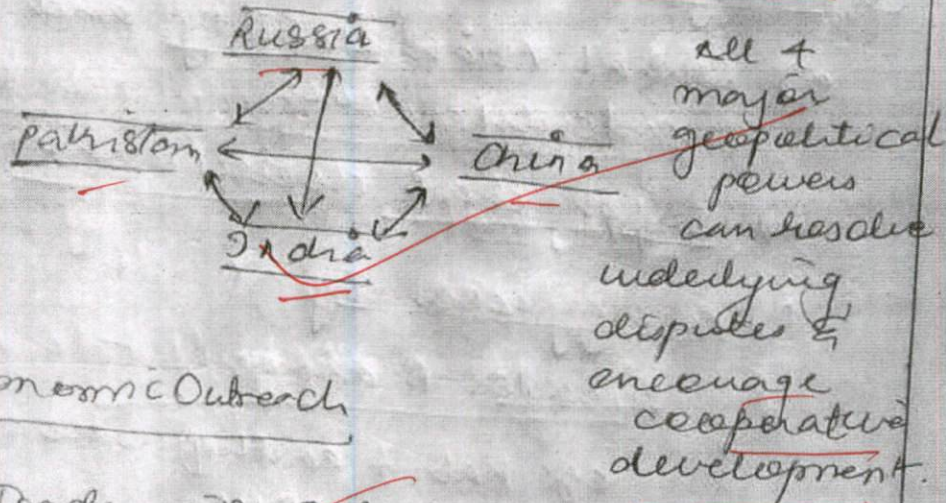 Russia
Pakistan
China
India
All 4
major
geopolitical
powers
can resolve
underlying
disputes &
encourage
cooperative
development.
nomic Outreach